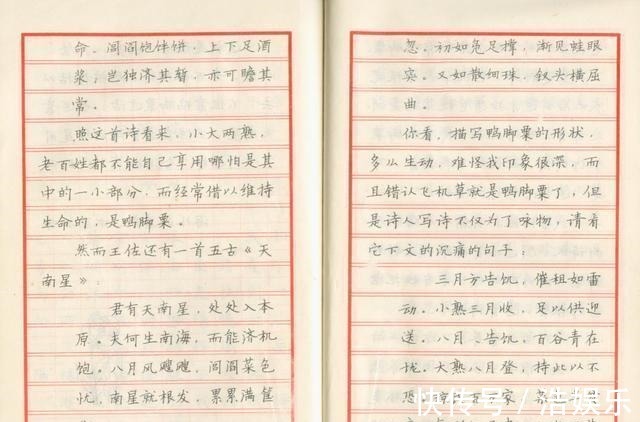 命。闾阎饱饼，上下足酒
浆，岂独济其暂，亦可赡其
常。
照这首诗看来，小大两熟，
老百姓都不能自己享用哪怕是其
中的一小部分，而经常借以维持
生命的，是鸭脚粟。
然而王佐还有一首五古《天
南星》：
君有天南星，处处入本
原。夫何生南海，而能济饥
饱。八月风飕飕，闾阎菜色
忧，南星就根发，累累满筐
忽。初如凫足撑，渐见蛙眼
突。又如散细珠，钗头横屈
曲。
你看，描写鸭脚粟的形状，
多么生动，难怪我印象很深，而
且错认飞机草就是鸭脚粟了，但
是诗人写诗不仅为了咏物，请看
它下文的沉痛的句子：
三月方告饥，催租如雷
动。小熟三月收，足以供迎
送。八月告饥，百谷青在
垅。大熟八月登，持此以不
恐
家
快传号 / 浩娱乐